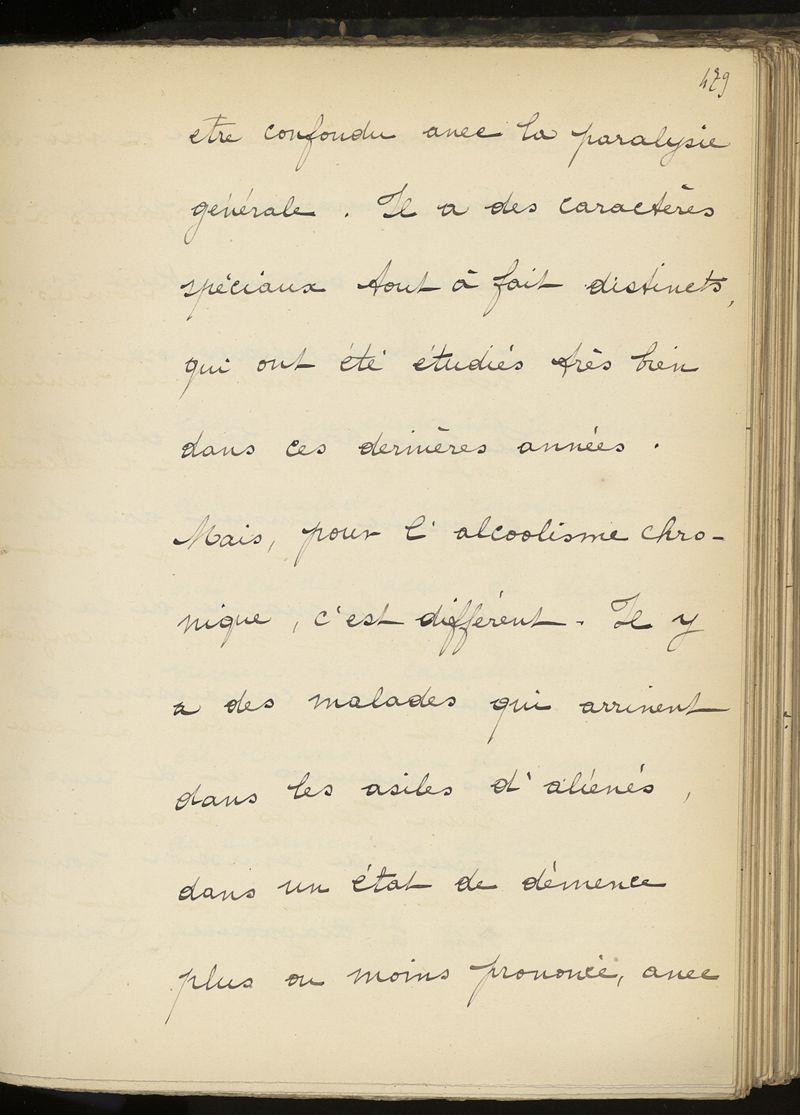 479
etre confondu avec la paralysie
générale. Il a des caractères
spéciaux tout à fait distincts,
qui ont été étudiés très bien
dans ces dernières années.
Mais, pour l'alcoolisme chro-
nique, c'est différent. Il y
a des malades qui arrivent
dans les asiles d'aliénés,
dans un état de démence
plus ou moins prononcée, avec